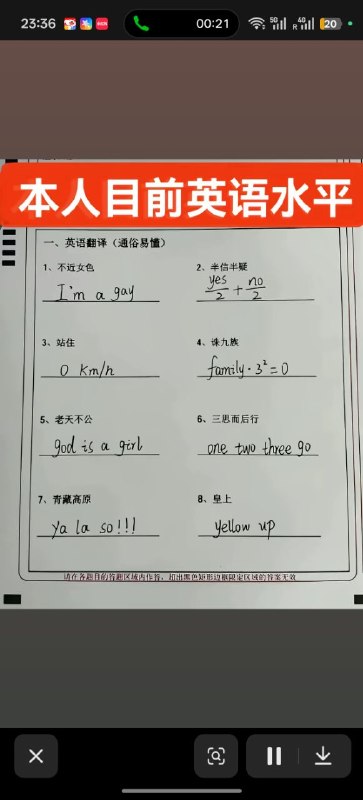 23:36
00:21
5G
4G
R
20
本人目前英语水平
一、英语翻译（通俗易懂）
1、不近女色
I'm a gay
2、半信半疑
yes/2 + no/2
3、站住
0 km/h
4、诛九族
family · 3² = 0
5、老天不公
god is a girl
6、三思而后行
one two three go
7、青藏高原
ya la so!!!
8、皇上
yellow up
请在各题目的答题区域内作答，超出黑色矩形边框限定区域的答案无效